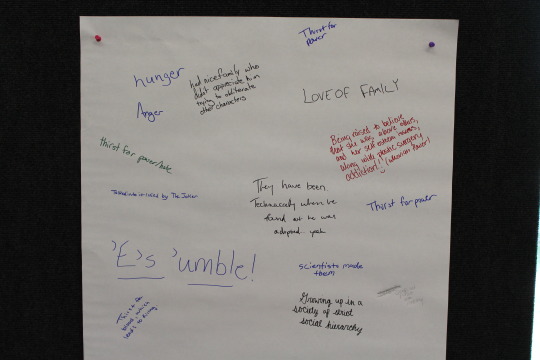 Thirst for
Power
hunger
Anger
had nice family who
didn't appreciate him
trying to obliterate
other characters
LOVE OF FAMILY
Being raised to believe
that she was above others,
and her self esteem issues,
along with plastic surgery
addiction!
thirst for power/hate
by The Joker
They have been
Technically when he
found out he was
adopted... yeah
Thirst for power
'E's 'umble!
scientists made
them
Thirst for
blood which
leads to
Growing up in a
society of strict
social hierarchy